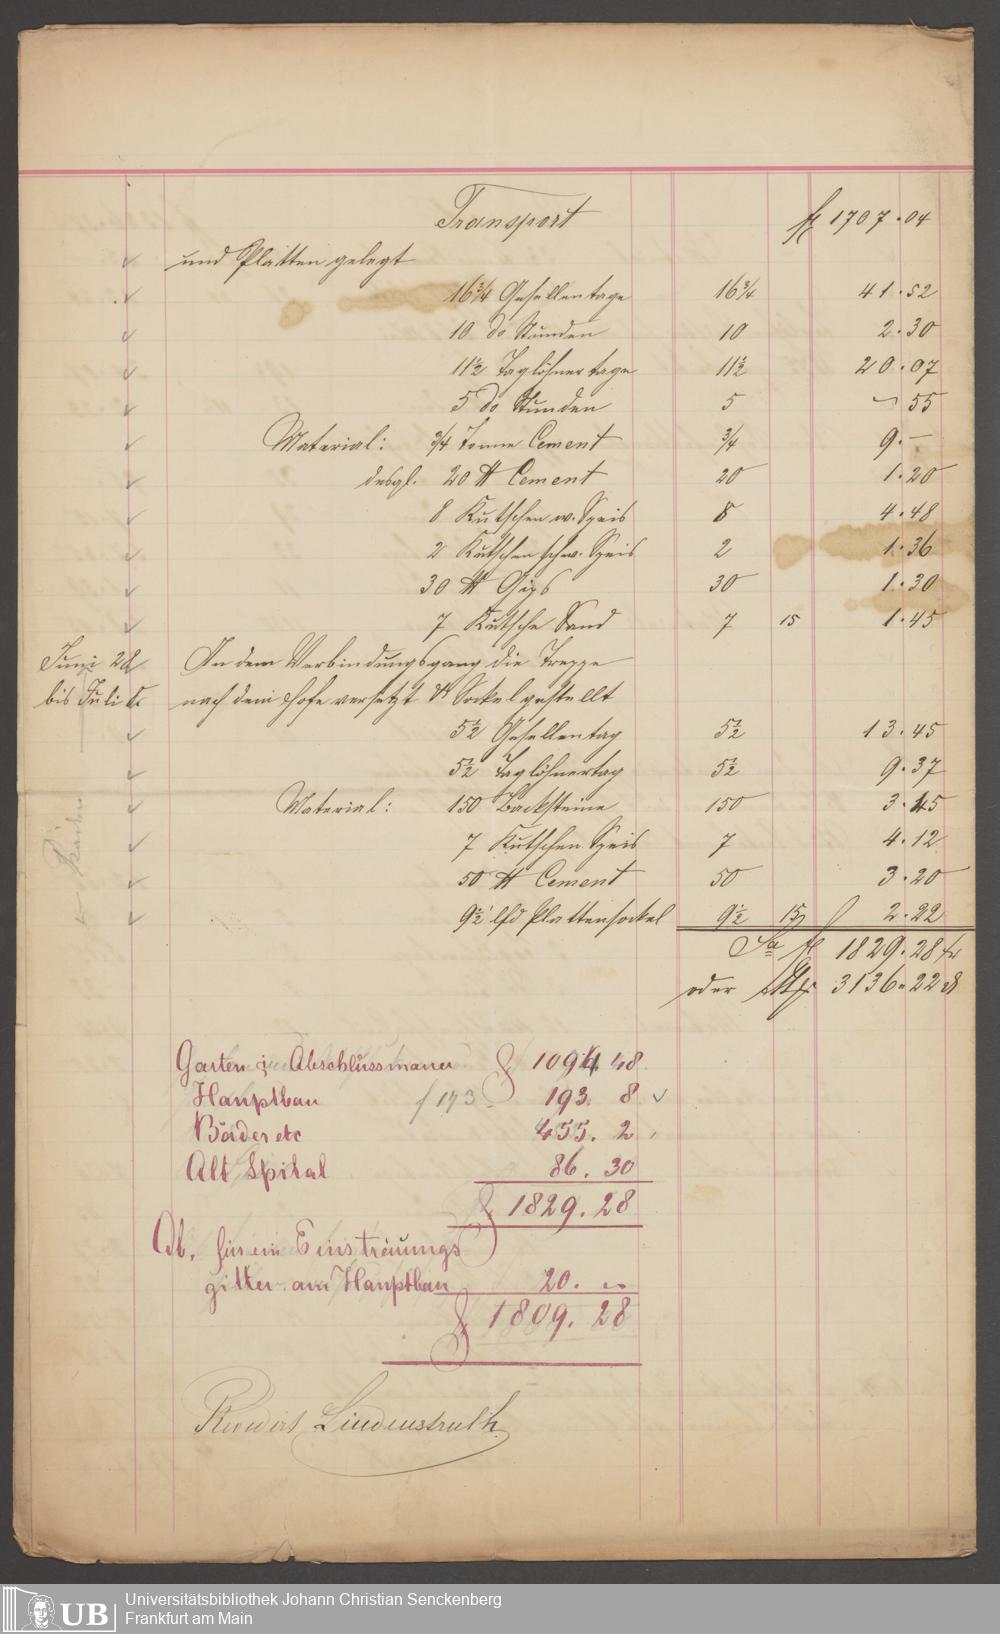 Transport fl 1707.04
und Platten gelegt
16¾ Gesellentage 16¾ 41.52
10 do Stunden 10 2.30
11½ Taglöhnertage 11½ 20.07
5 do Stunden 5 55
Material: ¾ Tonne Cement ¾ 9.—
desgl. 20 ℔ Cement 20 1.20
8 Kutschen w. Speis 8 4.48
2 Kutschen schw. Speis 2 1.36
30 ℔ Gips 30 1.30
7 Kutsche Sand 7 15 1.45
Juni 28 An dem Verbindungsgang die Treppe
bis Juli 5 nach dem Hofe versetzt & Sockel gestellt
5½ Gesellentag 5½ 13.45
5½ Taglöhnertag 5½ 9.37
Material: 150 Backsteine 150 3.45
7 Kutschen Speis 7 4.12
50 ℔ Cement 50 3.20
9½' lfd Plattensockel 9½ 15 2.22
Sa fl 1829.28 kr
oder Mk 3136.22 ₰
Garten & Abschlussmauer f 1094.48
Hauptbau f 173 193. 8
Bäder etc 455. 2
Alt Spital 86. 30
f 1829. 28
Ab, für ein Einstreuungs
gitter am Hauptbau 20. —
f 1809. 28
Revidirt Lindenstruth
UB
Universitätsbibliothek Johann Christian Senckenberg
Frankfurt am Main